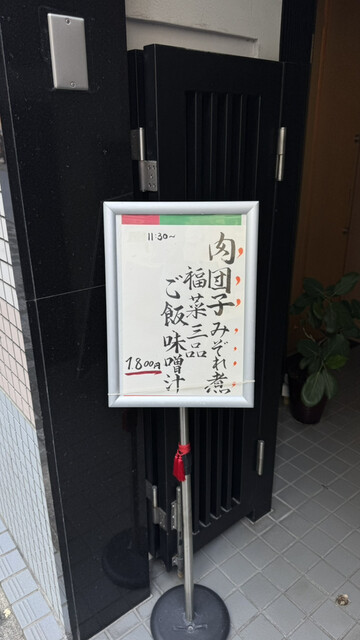 11:30〜
肉団子みぞれ煮
福菜三品
ご飯味噌汁
1.800円